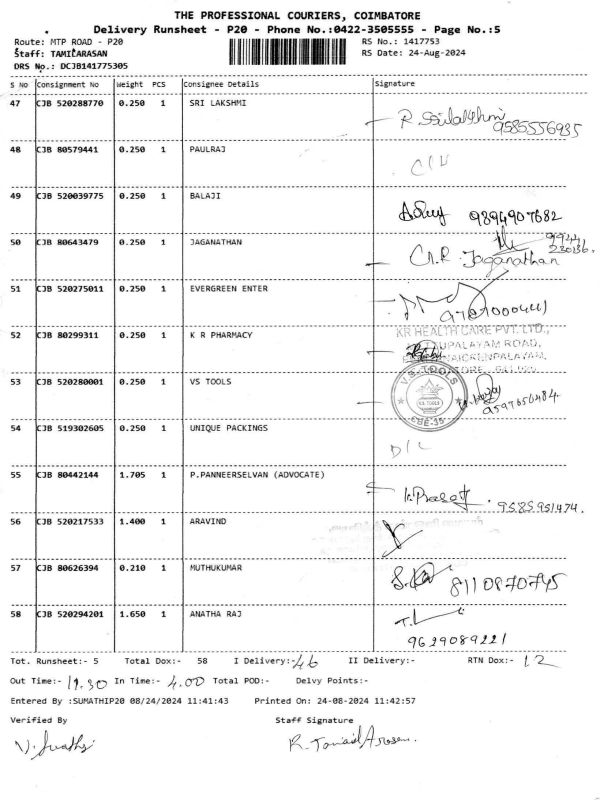 THE PROFESSIONAL COURIERS, COIMBATORE
Delivery Runsheet - P20 - Phone No.:0422-3505555 - Page No.:5
Route: MTP ROAD - P20
RS No.: 1417753
Staff: TAMILARASAN
RS Date: 24-Aug-2024
DRS No.: DCJB141775305
S No Consignment No Weight PCS Consignee Details Signature
47 CJB 520288770 0.250 1 SRI LAKSHMI
9585556935
48 CJB 80579441 0.250 1 PAULRAJ
49 CJB 520039775 0.250 1 BALAJI
9894907682
50 CJB 80643479 0.250 1 JAGANATHAN
Jaganathan
51 CJB 520275011 0.250 1 EVERGREEN ENTER
52 CJB 80299311 0.250 1 K R PHARMACY
KR HEALTH CARE PVT. LTD.,
53 CJB 520280001 0.250 1 VS TOOLS
V.S. TOOLS
V.S. TOOLS
CBE-35
9597656484
54 CJB 519302605 0.250 1 UNIQUE PACKINGS
D/L
55 CJB 80442144 1.705 1 P.PANNEERSELVAN (ADVOCATE)
9585951474
56 CJB 520217533 1.400 1 ARAVIND
57 CJB 80626394 0.210 1 MUTHUKUMAR
8110870745
58 CJB 520294201 1.650 1 ANATHA RAJ
9629089221
Tot. Runsheet:- 5 Total Dox:- 58 I Delivery:- 46 II Delivery:- RTN Dox:- 12
Out Time:- 11.30 In Time:- 4.00 Total POD:- Delvy Points:-
Entered By :SUMATHIP20 08/24/2024 11:41:43 Printed On: 24-08-2024 11:42:57
Verified By Staff Signature